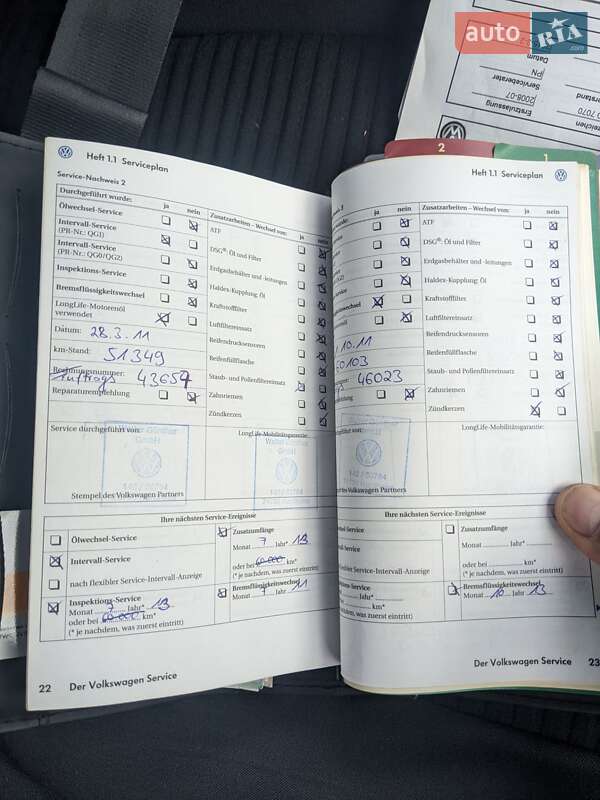 auto RIA .com
Datum
Serviceberater
PN
2008-07
Erstzulassung
7070
2
1
Heft 1.1 Serviceplan
Service-Nachweis 2
Durchgeführt wurde: ja nein Zusatzarbeiten – Wechsel von: ja nein
Ölwechsel-Service ATF
Intervall-Service
(PR-Nr.: QG1) DSG®: Öl und Filter
Intervall-Service
(PR-Nr.: QG0/QG2) Erdgasbehälter und -leitungen
Inspektions-Service Haldex-Kupplung: Öl
Bremsflüssigkeitswechsel Kraftstofffilter
LongLife-Motorenöl
verwendet Luftfiltereinsatz
Datum: 28.3.11 Reifendrucksensoren
km-Stand: 51349 Reifenfüllflasche
Rechnungsnummer: Auftrags 43657 Staub- und Pollenfiltereinsatz
Reparaturempfehlung Zahnriemen
Zündkerzen
Service durchgeführt von: LongLife-Mobilitätsgarantie:
GmbH
Stempel des Volkswagen Partners
Ihre nächsten Service-Ereignisse
Ölwechsel-Service Zusatzumfänge
Monat 7 Jahr* 13
Intervall-Service oder bei 60.000 km*
(* je nachdem, was zuerst eintritt)
nach flexibler Service-Intervall-Anzeige
Inspektions-Service Bremsflüssigkeitswechsel
Monat 7 Jahr* 13 Monat 7 Jahr 11
oder bei 60.000 km*
(* je nachdem, was zuerst eintritt)
22 Der Volkswagen Service
Heft 1.1 Serviceplan
ja nein Zusatzarbeiten – Wechsel von: ja nein
ATF
DSG®: Öl und Filter
Erdgasbehälter und -leitungen
Haldex-Kupplung: Öl
Kraftstofffilter
Luftfiltereinsatz
10.11 Reifendrucksensoren
60103 Reifenfüllflasche
46023 Staub- und Pollenfiltereinsatz
Zahnriemen
Zündkerzen
LongLife-Mobilitätsgarantie:
des Volkswagen Partners
Ihre nächsten Service-Ereignisse
Zusatzumfänge
Monat Jahr*
oder bei km*
(* je nachdem, was zuerst eintritt)
flexibler Service-Intervall-Anzeige
Bremsflüssigkeitswechsel
Jahr* Monat 10 Jahr 13
km*
(* je nachdem, was zuerst eintritt)
Der Volkswagen Service 23